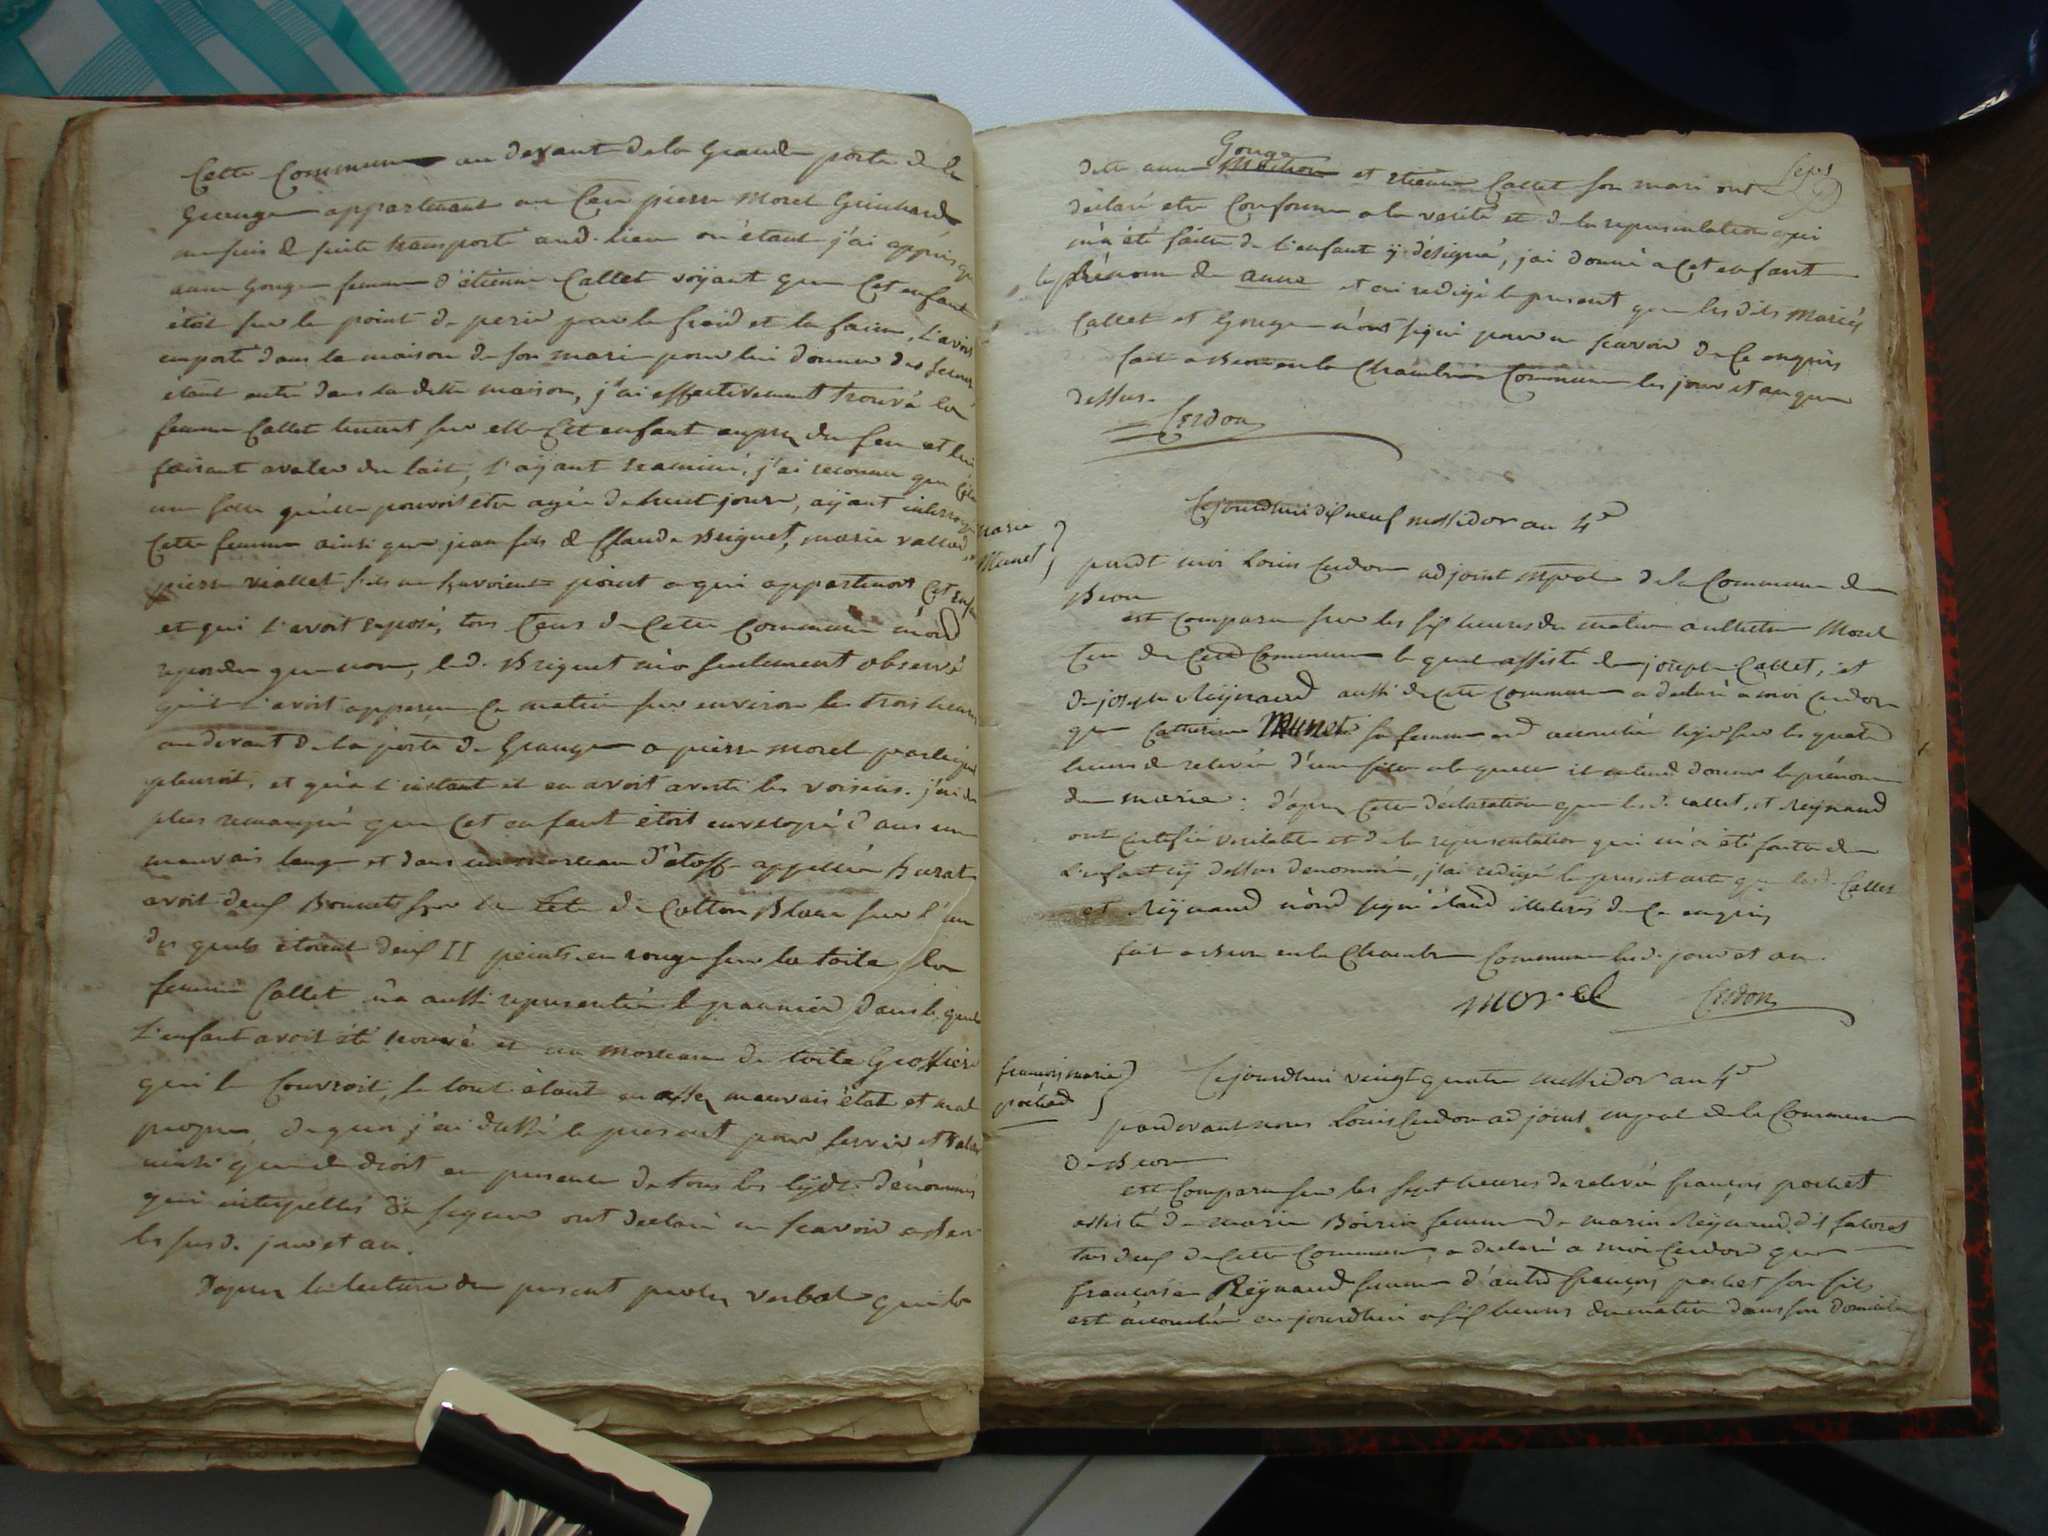 Cette Commune au devant de la Grande porte de la
Grange appartenant au Cen pierre Morel Guichard
me suis de suite transporté aud. lieu où étant j'ai appris que
anne Gouge femme d'étienne Callet voÿant que Cet enfant
étoit sur le point de perir par le froid et la faim, l'avoit
emporté dans la maison de son mari pour lui donner des secours
étant entré dans la ditte maison, j'ai effectivement trouvé la
femme Callet tenant sur elle Cet enfant auprès du feu et lui
faisant avaler du lait, l'aÿant examiné, j'ai reconnu que
une fille qu'elle pouvoit etre agée de huit jours, aÿant interrogé
Cette femme ainsi que jean fils de Claude Briguet, marie
pierre viallet s'ils ne scavoient point a qui appartenoit Cet enfant
et qui l'avoit exposé, tous Ceux de Cette Commune m'ont
repondu que non, led. Briguet m'a seulement observé
qu'il l'avoit apperçu Ce matin sur environ les trois heures
au devant de la porte de Grange a pierre morel
pleuroit, et qu'a l'instant il en avoit averti les voisins. j'ai de
plus remarqué que Cet enfant étoit envelopé dans un
mauvais lange et dans un morceau d'étoffe appellée Burat
avoit deux Bonnets sur la tete de Cotton Blanc sur l'un
des quels étoient deux II peints en rouge sur la toile, la
femme Callet m'a aussi representée le pannier dans le quel
L'enfant avoit été trouvé et un morceau de toile Grossiere
qui le Couvroit, le tout étant en assez mauvais état et mal
propre, de quoi j'ai dressé le present pour servir et valoir
ainsi que de droit en presence de tous les dénommés
qui interpellés de signer ont declaré ne scavoir
les susd. jour et an.
D'apres la lecture du present proces verbal que la
Sept
Gouge
ditte anne et etienne Callet son mari ont
déclaré etre Conforme a la verité et de la representation qui
m'a été faitte de l'enfant ÿ désigné, j'ai donné a Cet enfant
le prénom de anne et ai redigé le present que les dits mariés
Callet et Gouge n'ont signé pour ne scavoir de Ce enquis
fait a Beon en la Chambre Commune les jour et an que
dessus.
Cerdon
Cejourdhui dix neuf messidor an 4e
marie
Munet
pardt moi Louis Cerdon adjoint mpal de la Commune de
Beon
est Comparu sur les six heures du matin Morel
Cen de Cette Commune le quel assisté de joseph Callet, et
de joseph Reÿnaud aussi de cette Commune a declaré a moi Cerdon
que Catherine Munet sa femme est accouchée hyer sur les quatre
heures de relevée d'une fille a la quelle il entend donner le prénom
de marie: d'apres Cette déclaration que les d. Callet, et Reÿnaud
ont Certifié veritable et de la representation qui m'a été faitte de
L'enfant cÿ dessus denommé, j'ai redigé le present acte que les d. Callet
et Reÿnaud n'ont signé étant illiterés de Ce enquis
fait a Beon en la Chambre Commune lesd. jour et an.
Morel Cerdon
françois marie
pochet
Cejourdhui vingt quatre messidor an 4e
pardevant nous Louis Cerdon adjoint mpal de la Commune
de Beon
est Comparu sur les sept heures de relevée françois pochet
assisté de marie femme de marin Reÿnaud dit
tous deux de Cette Commune, a declaré a moi Cerdon que
françoise Reÿnaud femme d'autre françois pochet son fils
est accouchée cejourdhui a six heures du matin dans son domicile